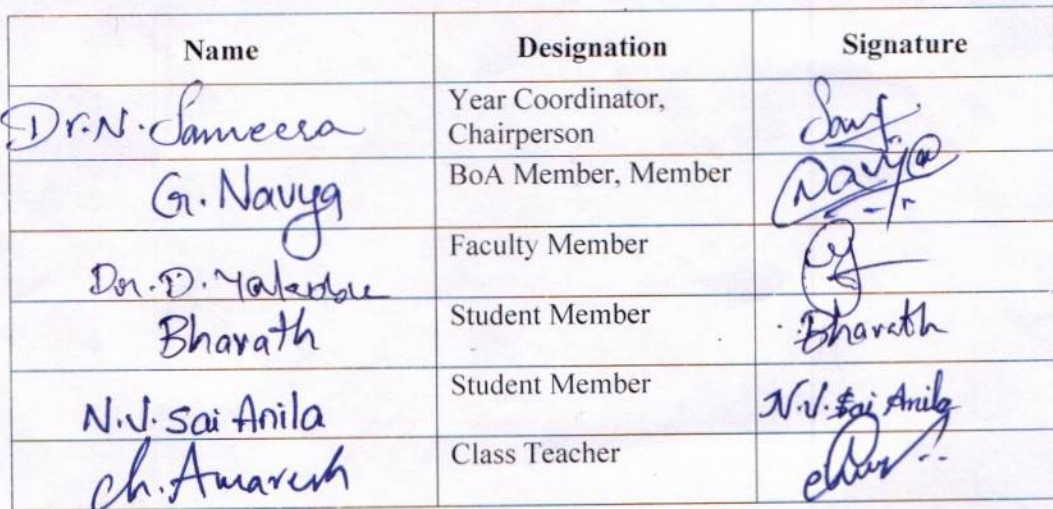 Name Designation Signature
Dr. N. Sameera Year Coordinator, Chairperson
G. Navya BoA Member, Member Navya
Dr. D. Faculty Member
Bharath Student Member Bharath
N.V. Sai Anila Student Member N.V. Sai Anila
Ch. Amaresh Class Teacher